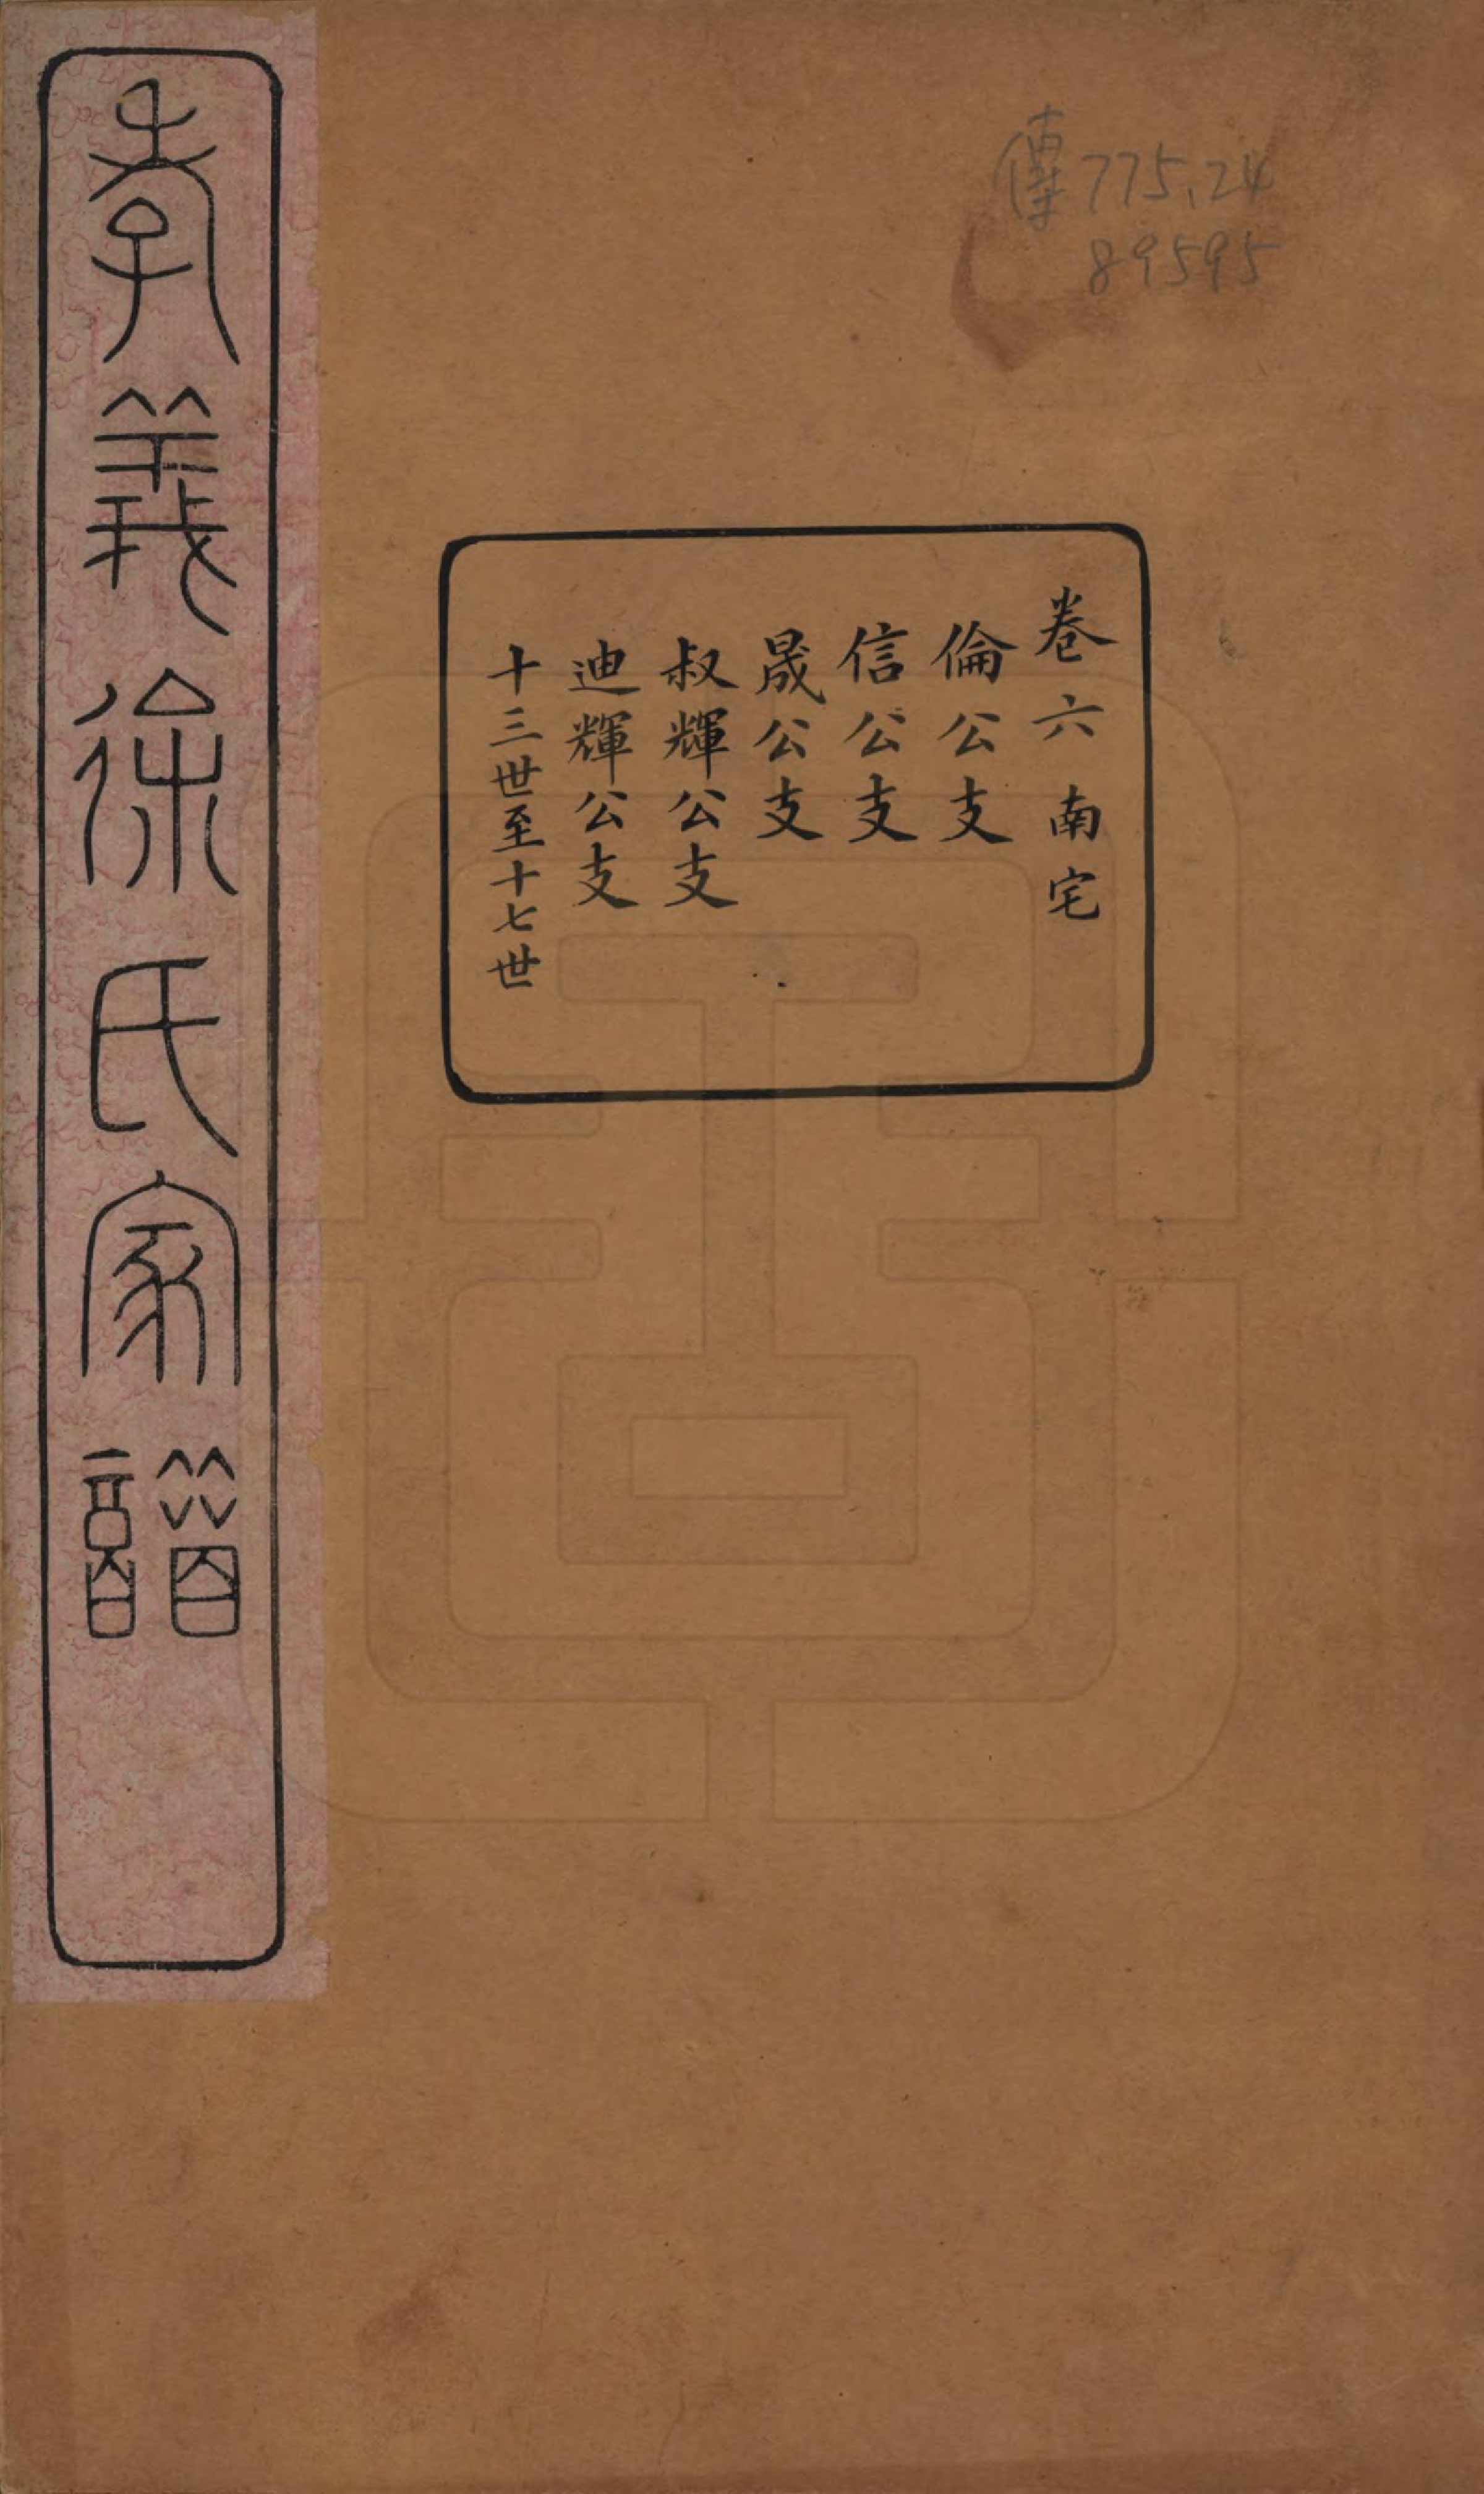 傳 775.24
89595
卷六 南宅
倫公支
信公支
晟公支
叔輝公支
迪輝公支
十三世至十七世
孝義徐氏家譜